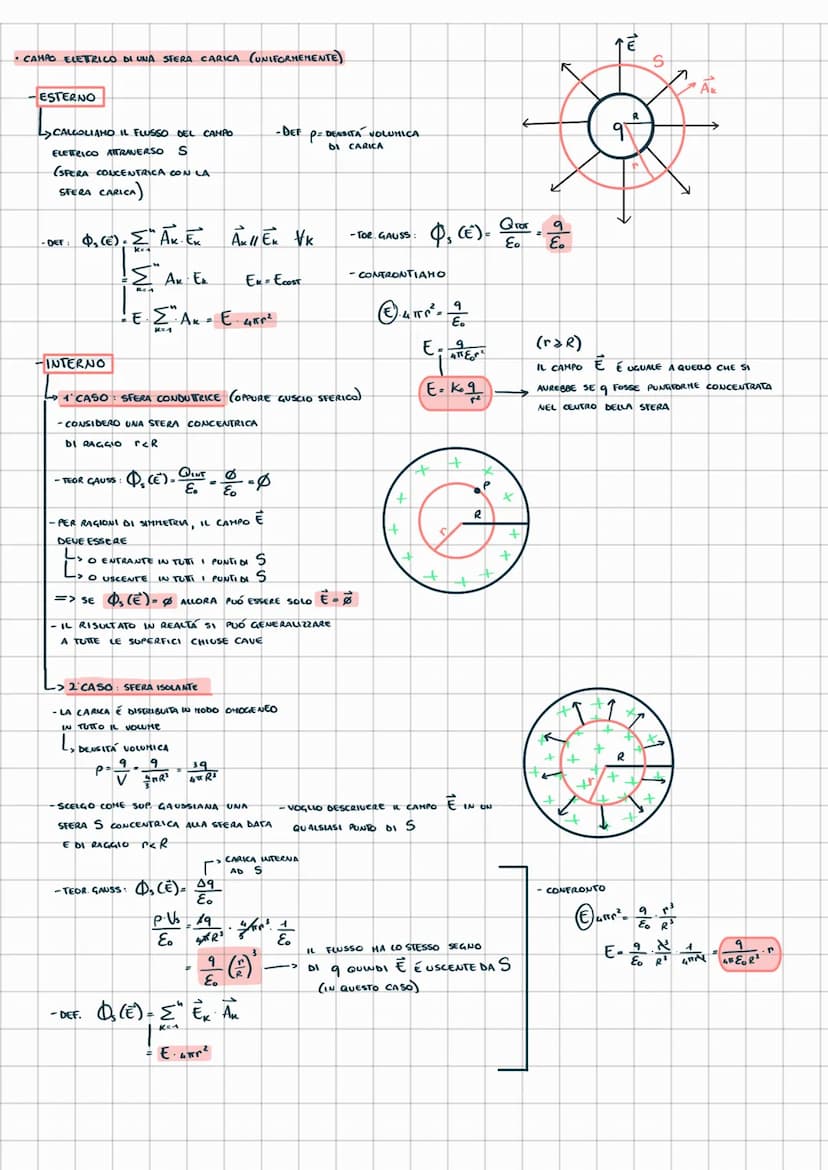 • CAMPO ELETTRICO DI UNA SFERA CARICA (UNIFORMEMENTE)
- ESTERNO
CALCOLIAMO IL FLUSSO DEL CAMPO
ELETTRICO ATTRAVERSO S
(SFERA CONCENTRICA CON LA
SFERA CARICA)
- DEF ρ = DENSITÀ VOLUMICA
DI CARICA
E⃗
S
A⃗k
R
q
r
- DEF: Φs(E⃗) = Σⁿ k=1 A⃗k · E⃗k   A⃗k // E⃗k ∀k
= Σⁿ k=1 Ak · Ek   Ek = Ecost
= E · Σⁿ k=1 Ak = E · 4πr²
- TOR. GAUSS: Φs(E⃗) = QTOT/ε₀ = q/ε₀
- CONFRONTIAMO
E · 4πr² = q/ε₀
E = q/4πε₀r²
E = K₀ q/r²
(r ≥ R)
IL CAMPO E⃗ È UGUALE A QUELLO CHE SI
AVREBBE SE q FOSSE PUNTIFORME CONCENTRATA
NEL CENTRO DELLA SFERA
- INTERNO
1° CASO: SFERA CONDUTTRICE (OPPURE GUSCIO SFERICO)
- CONSIDERO UNA SFERA CONCENTRICA
DI RAGGIO r<R
- TEOR GAUSS: Φs(E⃗) = QINT/ε₀ = Ø/ε₀ = Ø
- PER RAGIONI DI SIMMETRIA, IL CAMPO E⃗
DEVE ESSERE
O ENTRANTE IN TUTTI I PUNTI DI S
O USCENTE IN TUTTI I PUNTI DI S
=> SE Φs(E⃗) = Ø ALLORA PUÓ ESSERE SOLO E⃗ = Ø⃗
- IL RISULTATO IN REALTÁ SI PUÓ GENERALIZZARE
A TUTTE LE SUPERFICI CHIUSE CAVE
P
R
r
2° CASO: SFERA ISOLANTE
- LA CARICA É DISTRIBUITA IN MODO OMOGENEO
IN TUTTO IL VOLUME
DENSITÁ VOLUMICA
ρ = q/V = q/(4/3 πR³) = 3q/4πR³
- SCELGO COME SUP. GAUSSIANA UNA
SFERA S CONCENTRICA ALLA SFERA DATA
E DI RAGGIO r<R
- VOGLIO DESCRIVERE IL CAMPO E⃗ IN UN
QUALSIASI PUNTO DI S
R
r
CARICA INTERNA
AD S
- TEOR. GAUSS: Φs(E⃗) = Δq/ε₀
ρ·Vs/ε₀ = 3q/4πR³ · 4/3 πr³ · 1/ε₀
= q/ε₀ (r/R)³
IL FLUSSO HA LO STESSO SEGNO
DI q QUINDI E⃗ É USCENTE DA S
(IN QUESTO CASO)
- DEF. Φs(E⃗) = Σⁿ k=1 E⃗k · A⃗k
= E · 4πr²
- CONFRONTO
E 4πr² = q/ε₀ · r³/R³
E = q/ε₀ · r³/R³ · 1/4πr² = q/4πε₀R³ · r